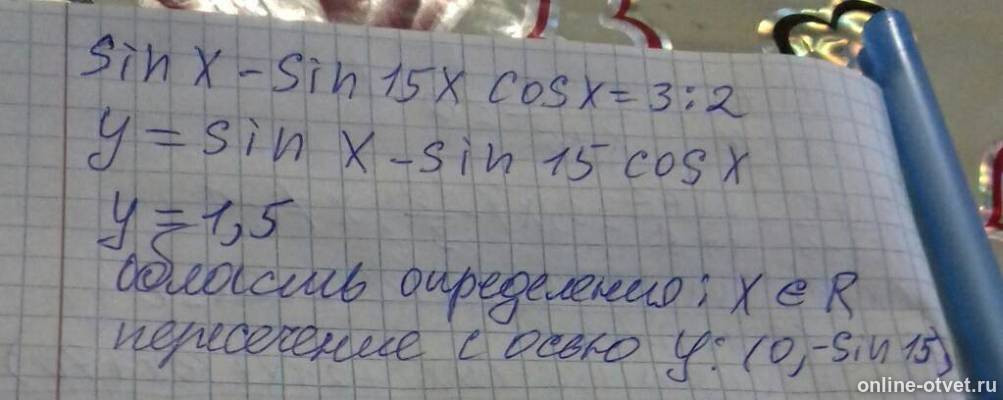 sin x - sin 15x cosx = 3:2
y = sin x - sin 15 cosx
y = 1,5
область определения: x ∈ R
пересечение с осью y: (0, -sin 15)
online-otvet.ru